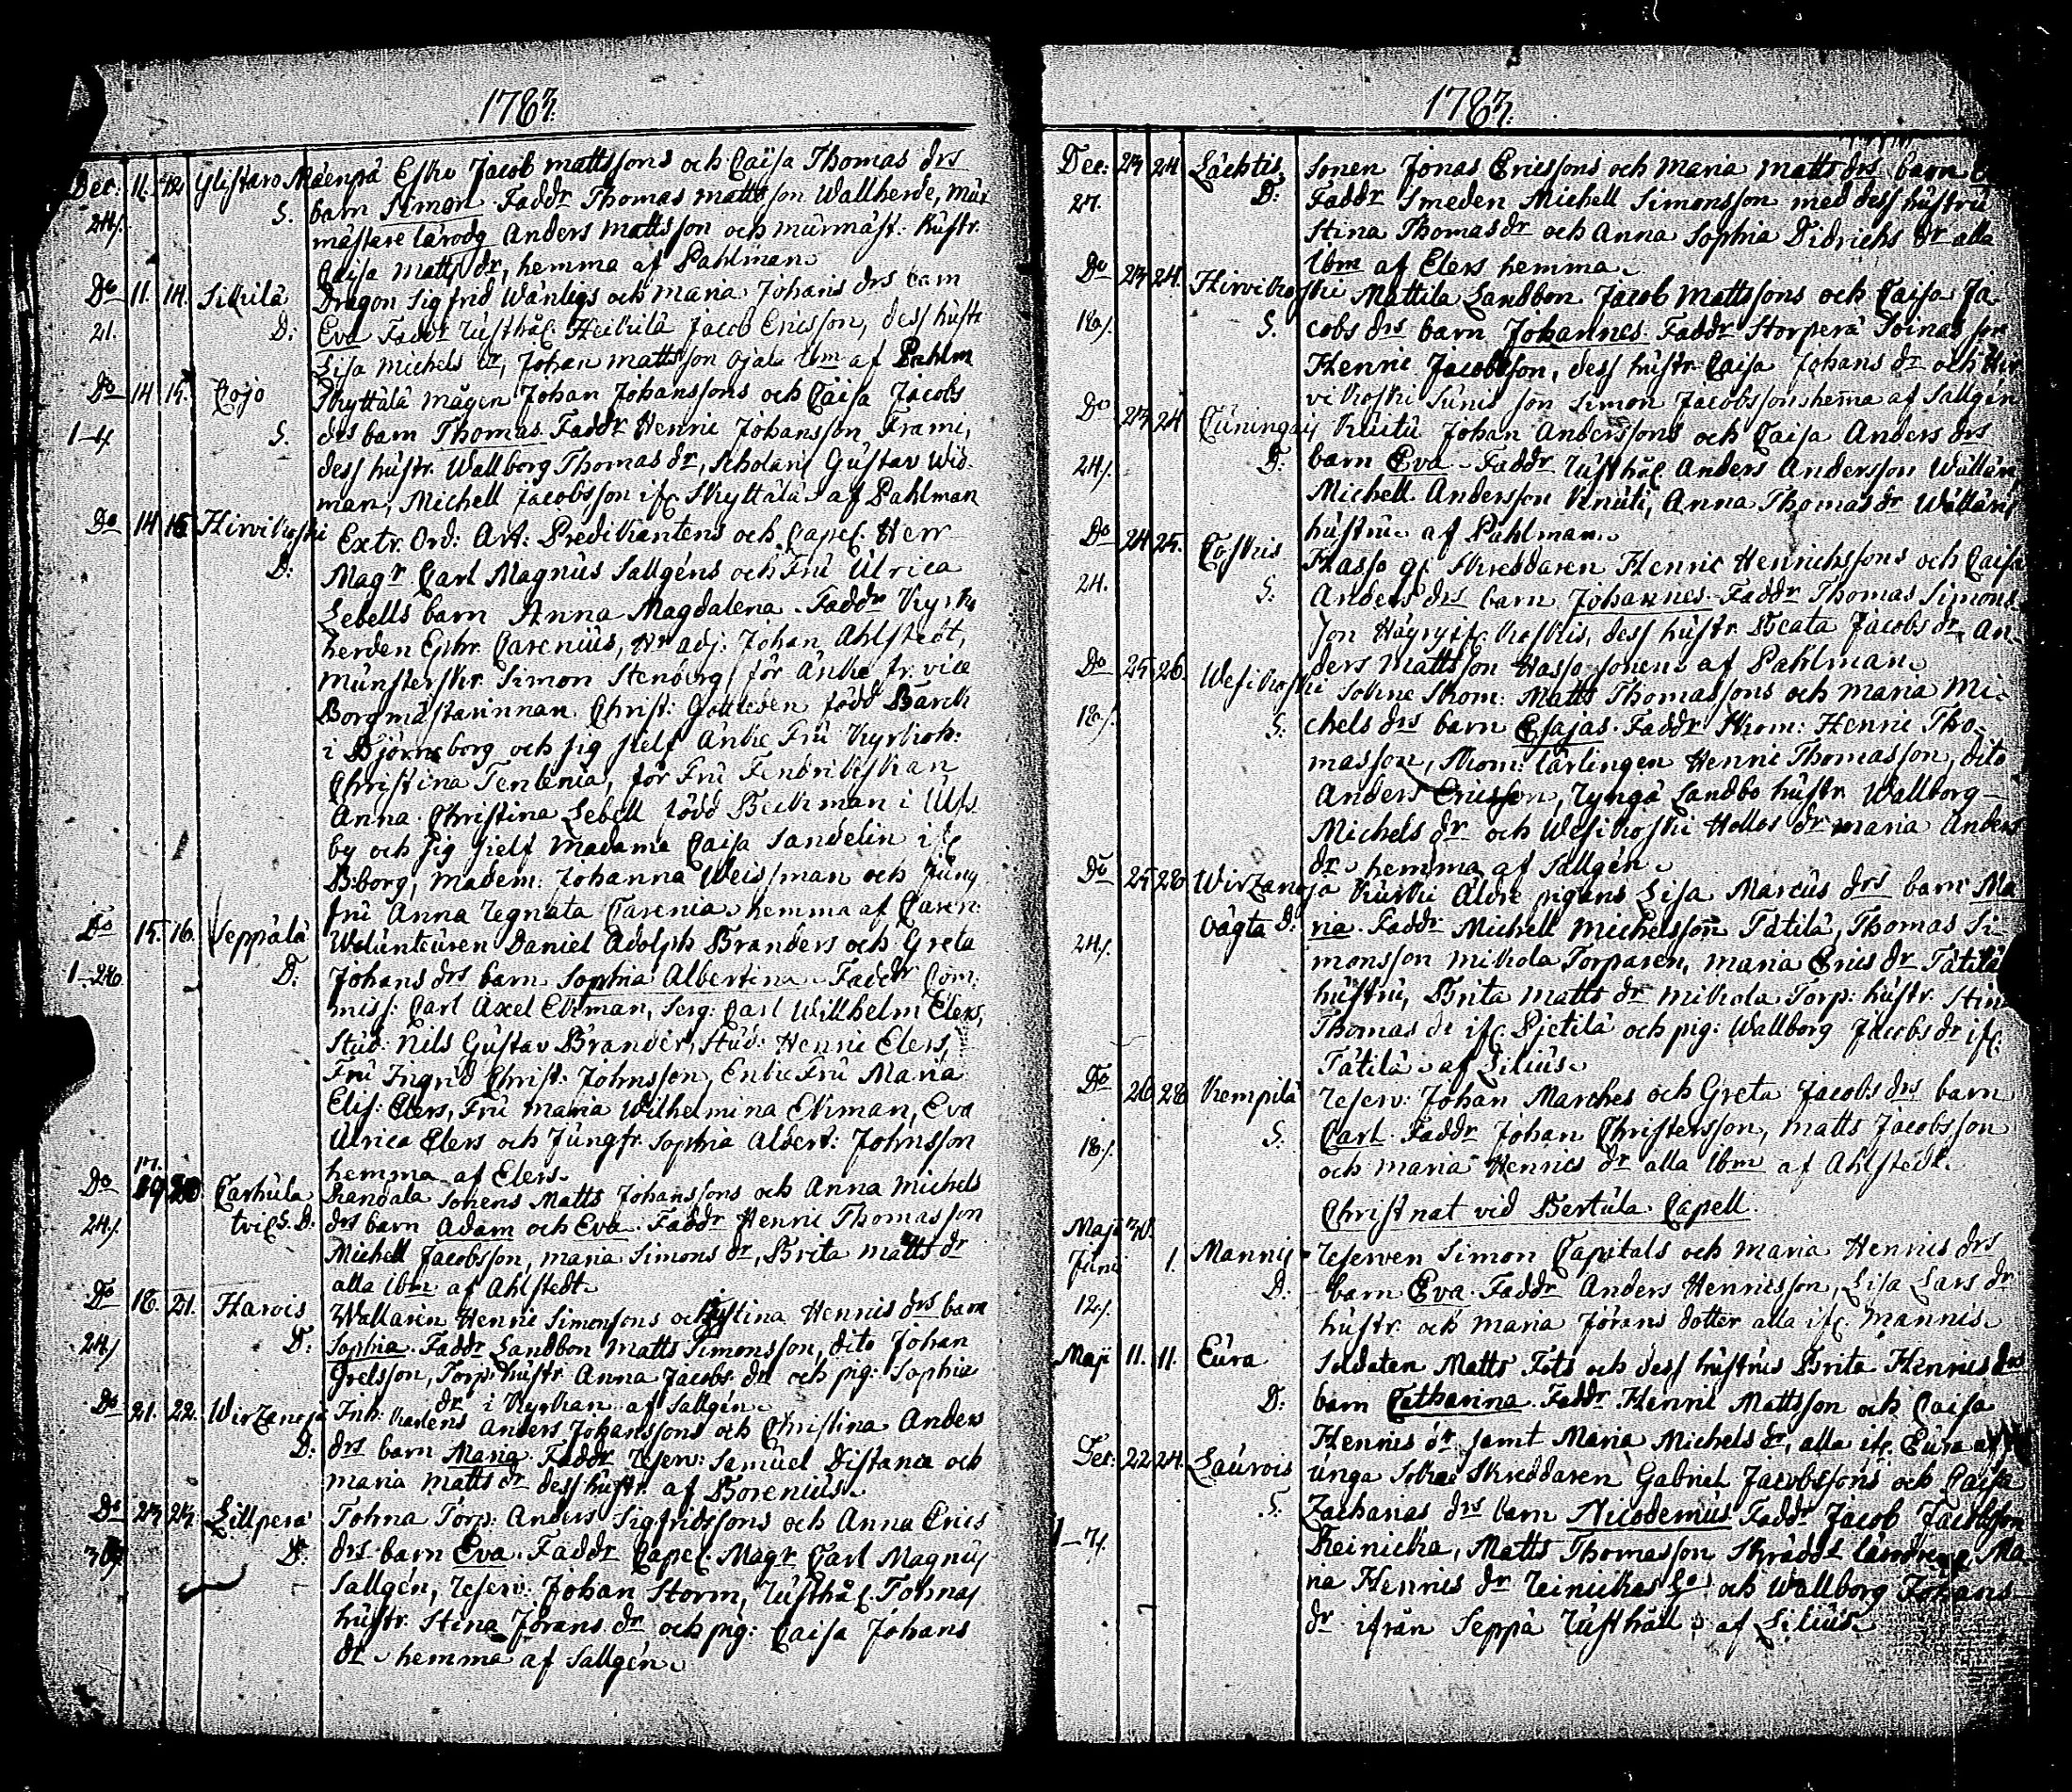 1783.
Dec: 11. 12. Ylistaro Mäenpä Esko Jacob Mattssons och Caisa Thomas drs
24/. S. barn Simon. Faddr Thomas Mattsson Wallherde, Mur
mästare lärodg Anders Mattsson och murmäst: hustr.
Caisa Matts dr, hemma af Pahlman.
Do 11. 14. Sikilä Dragon Sigfrid Wänligs och Maria Johans drs barn
21. D: Eva Faddr Rusthål: Heikilä Jacob Ericsson, dess hustr
Lisa Michels dr, Johan Mattsson Ojala ibm af Pahlm
Do 14 15. Cojo Skyttälä mågen Johan Johanssons och Caisa Jacobs
1-4 S. drs barn Thomas. Faddr Henric Johansson Frami,
dess hustr. Wallborg Thomas dr, Scholaris Gustav Wid-
man, Michell Jacobsson ifr. Skyttälä af Pahlman
Do 14 15 Hirvikoski Extr. Ord: Art: Predikantens och Capel. Herr
D: Magr Carl Magnus Sallgéns och Fru Ulrica
Lebells barn Anna Magdalena. Faddr Kyrko
herden Ephr. Carenius, Vr adj: Johan Ahlstedt,
Münsterskr. Simon Stenberg, för Änke fr. vice
Borgmästarinnan Christ: Gottleben född Barck
i Björneborg och sig sielf Änke Fru Kyrkoh:
Christina Tenlenia, för Fru Fendrikskan
Anna Christina Lebell född Beckman i Ulfs
by och sig sielf Madame Caisa Sandelin if
B:borg, Madem: Johanna Weissman och Jung
fru Anna Regnata Carenia hemma af Caren:
Do 15. 16. Seppälä Woluntairen Daniel Adolph Branders och Greta
1-26 D: Johans drs barn Sophia Albertina. Faddr Com:
miss: Carl Axel Ekman, Serg: Carl Willhelm Elers,
Stud: Nils Gustav Brander, Stud: Henric Elers,
Fru Ingrid Christ: Johnsson, Enke Fru Maria
Elis: Elers, Fru Maria Wilhelmina Ekman, Eva
Ulrica Elers och Jungfr. Sophia Albert: Johnsson
hemma af Elers.
Do 17. 19 20 Carhula Randala Sonens Matts Johanssons och Anna Michels
24/. tvil: S. D: drs barn Adam och Eva. Faddr Henric Thomasson
Michell Jacobsson, Maria Simons dr, Brita Matts dr
alla ibm af Ahlstedt.
Do 18. 21. Harois Wallarin Henric Simonssons och Justina Henrics drs barn
24/ D: Sophia. Faddr Landbon Matts Simonsson, dito Johan
Grelsson, Torp: hustr Anna Jacobs dr och pig: Sophia
dr i Kyrkan af Sallgén.
Do 21. 22. Wirzanoja Inh. Karlens Anders Johanssons och Christina Anders
D: drs barn Maria. Faddr Reserv: Samuel Distance och
Maria Matts dr dess hustr af Borenius.
Do 23 23. Lillperä Tohna Torp: Anders Sigfridssons och Anna Erics
D: drs barn Eva. Faddr Capel. Magr Carl Magnus
Sallgén, Reserv: Johan Storm, Rusthål. Tohnas
hustr. Stina Jörans dr och pig: Caisa Johans
dr. hemma af Sallgén.
1783.
Dec: 23 24 Lächtis Sonen Jonas Ericssons och Maria Matts drs barn
27. D: Faddr Smeden Michell Simonsson med dess hustru
Stina Thomasdr och Anna Sophia Didrichs dr alla
ibm af Elers hemma.
Do 23 24. Hirvikoski Mattila Landbon Jacob Mattssons och Caisa Ja
18/. S. cobs drs barn Johannes Faddr Storperä Soinas son
Henric Jacobsson, dess hustr Caisa Johans dr och Hir
vikoski Sunis son Simon Jacobsson hemma af Sallgén
Do 23 24 Cuningais Knuta Johan Anderssons och Caisa Anders drs
24/. D: barn Eva. Faddr Rusthål Anders Andersson Wällärs,
Michell Andersson Knuti, Anna Thomas dr Wällärs
hustru af Pahlman.
Do 24 25. Coskis Hasso gl. Skreddaren Henric Henrichssons och Caisa
24. S: Anders drs barn Johannes. Faddr Thomas Simons
son Häyry ifr Koskis, dess hustr Beata Jacobs dr, An-
ders Mattsson Hasso sonen af Pahlman.
Do 25. 26. Wesikoski Sokne Skom: Matts Thomassons och Maria Mi-
18/. S: chels drs barn Esajas. Faddr Skom: Henric Tho-
masson, Skom: lärlingen Henric Thomasson, dito
Anders Ericsson, Ryngä Landbo hustr Wallborg
Michels dr och Wesikoski Hollos dr Maria Anders
dr. hemma af Sallgén.
Do 25 28 Wirzanoja Kurki Äldre pigans Lisa Marcus drs barn Ma
24/. oägta D: ria. Faddr Michell Michelsson Tätilä, Thomas Si-
monsson Mikola Torparen, Maria Erics dr Tätilä
hustru, Brita Matts dr Mikola Torp: hustr. Stin
Thomas dr ifr. Pietilä och pig: Wallborg Jacobs dr ifr.
Tätilä af Lilius.
Do 26 28 Kempilä Reserv: Johan Marches och Greta Jacobs drs barn
18/. S. Carl. Faddr Johan Christersson, Matts Jacobsson
och Maria Henrics dr alla ibm af Ahlstedt.
Christnat vid Bertula Capell.
Maji 30.
Juni 1. Mannis Reserven Simon Capitals och Maria Henrics drs
12/. D: barn Eva. Faddr Anders Henricsson, Lisa Lars dr
hustr. och Maria Jörans dotter alla ifr. Mannis.
Maji 11. 11. Eura Soldaten Matts Fots och dess hustrus Brita Henrics drs
D: barn Catharina. Faddr Henric Mattsson och Caisa
Henrics dr samt Maria Michels dr, alla ifr. Eura af
Dec: 22 24. Laurois unga Sokne Skreddaren Gabriel Jacobssons och Caisa
S: Zacharias drs barn Nicodemus Faddr Jacob Jacobsson
1-7/. Reinicka, Matts Thomasson Skrädd: Ma
ria Henrics dr Reinickas och Wallborg Johans
dr ifrån Seppä Rusthåll af Lilius.